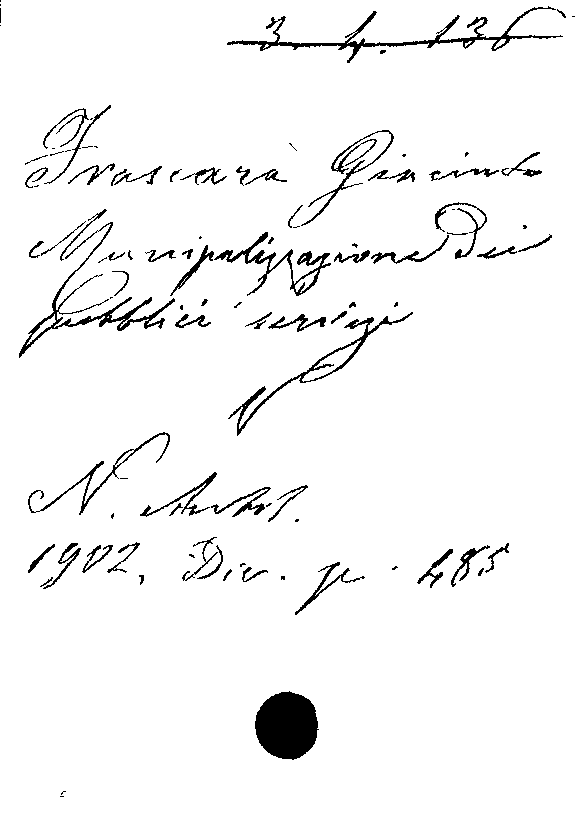 3. 4. 136
Frascarà Giacinto
Municipalizzazione dei
pubblici servizi
N. Antol.
1902, Dic. p. 485